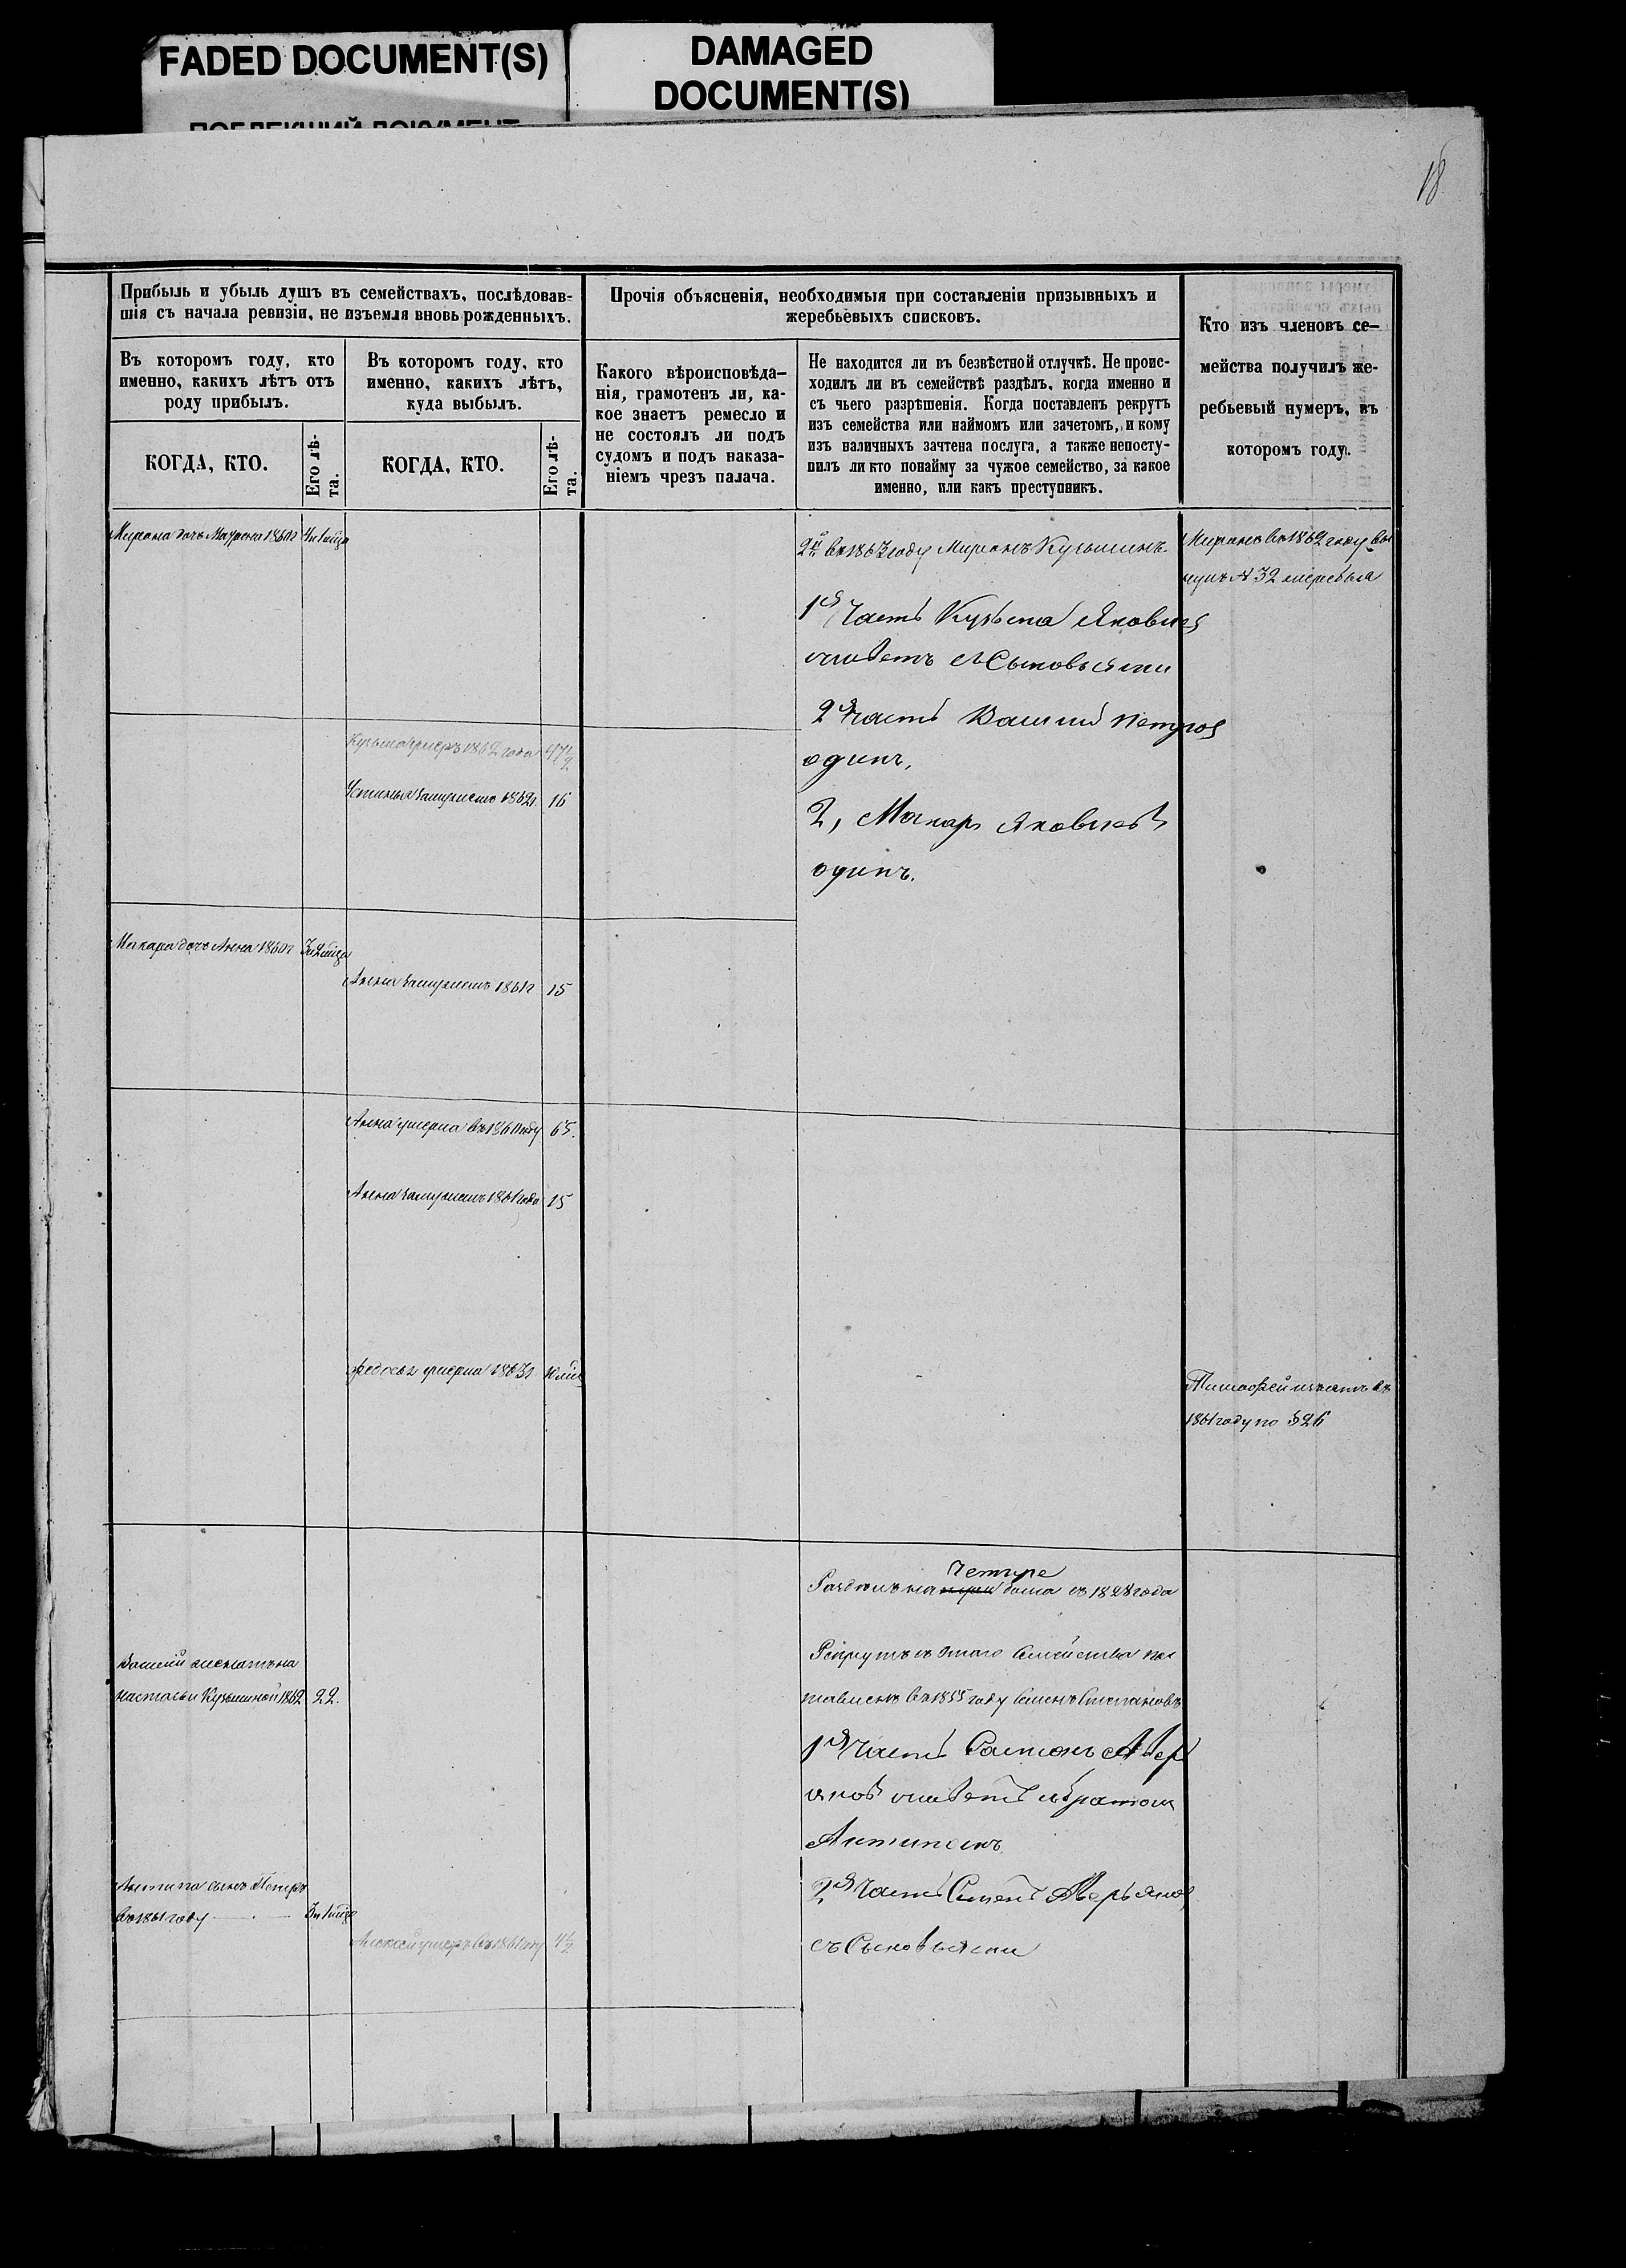 FADED DOCUMENT(S)
DAMAGED
DOCUMENT(S)
ПОБЛЕКШИЙ ДОКУМЕНТ
18
Прибыль и убыль душъ въ семействахъ, послѣдовав-
шія съ начала ревизіи, не изъемля вновь рожденныхъ.
Прочія объясненія, необходимыя при составленіи призывныхъ и
жеребьевыхъ списковъ.
Кто изъ членовъ се-
мейства получилъ же-
ребьевый нумеръ, въ
которомъ году.
Въ которомъ году, кто
именно, какихъ лѣтъ отъ
роду прибылъ.
Въ которомъ году, кто
именно, какихъ лѣтъ,
куда выбылъ.
Какого вѣроисповѣда-
нія, грамотенъ ли, ка-
кое знаетъ ремесло и
не состоялъ ли подъ
судомъ и подъ наказа-
ніемъ чрезъ палача.
Не находится ли въ безвѣстной отлучкѣ. Не проис-
ходилъ ли въ семействѣ раздѣлъ, когда именно и
съ чьего разрѣшенія. Когда поставленъ рекрутъ
изъ семейства или наймомъ или зачетомъ, и кому
изъ наличныхъ зачтена послуга, а также непосту-
пилъ ли кто понайму за чужое семейство, за какое
именно, или какъ преступникъ.
КОГДА, КТО.
Его лѣ-
та.
КОГДА, КТО.
Его лѣ-
та.
Мирона дочь 1860г
2й въ 1867 году Миронъ Кузьминъ.
Миронъ въ 1862 году вы
нулъ № 32 жеребья
1я Часть Кузьма Яковлев
живетъ съ Сыновьями
2я часть Василий Петров
одинъ,
2, Макаръ Яковлевъ
одинъ.
Кузьма умеръ 1862 года 47 1/2
Устинья замужемъ 1862г. 16
Макара дочь Анна 1860г
Анна замужемъ 1861г 15
Анна умерла въ 1860 году 65.
Анна замужемъ 1861 года 15
Федосья умерла 1863г
Тимофей изъятъ въ
1861 году по § 26
Четыре
Раздѣлъ на три дома съ 1828 года
Рекрутъ съ этого Семейства пос
тавленъ въ 1855 году Семенъ Степановъ
Василий женатъ на
настасьи Кузьминой 1862 22.
1я Часть Самсонъ Авер
яновъ живетъ с братом
Антипомъ
2я Часть Семенъ Аверьянов
съ Сыновьями
Антипа сынъ Петръ
въ 1861 году
Алексей умеръ въ 1861 году 4 1/2